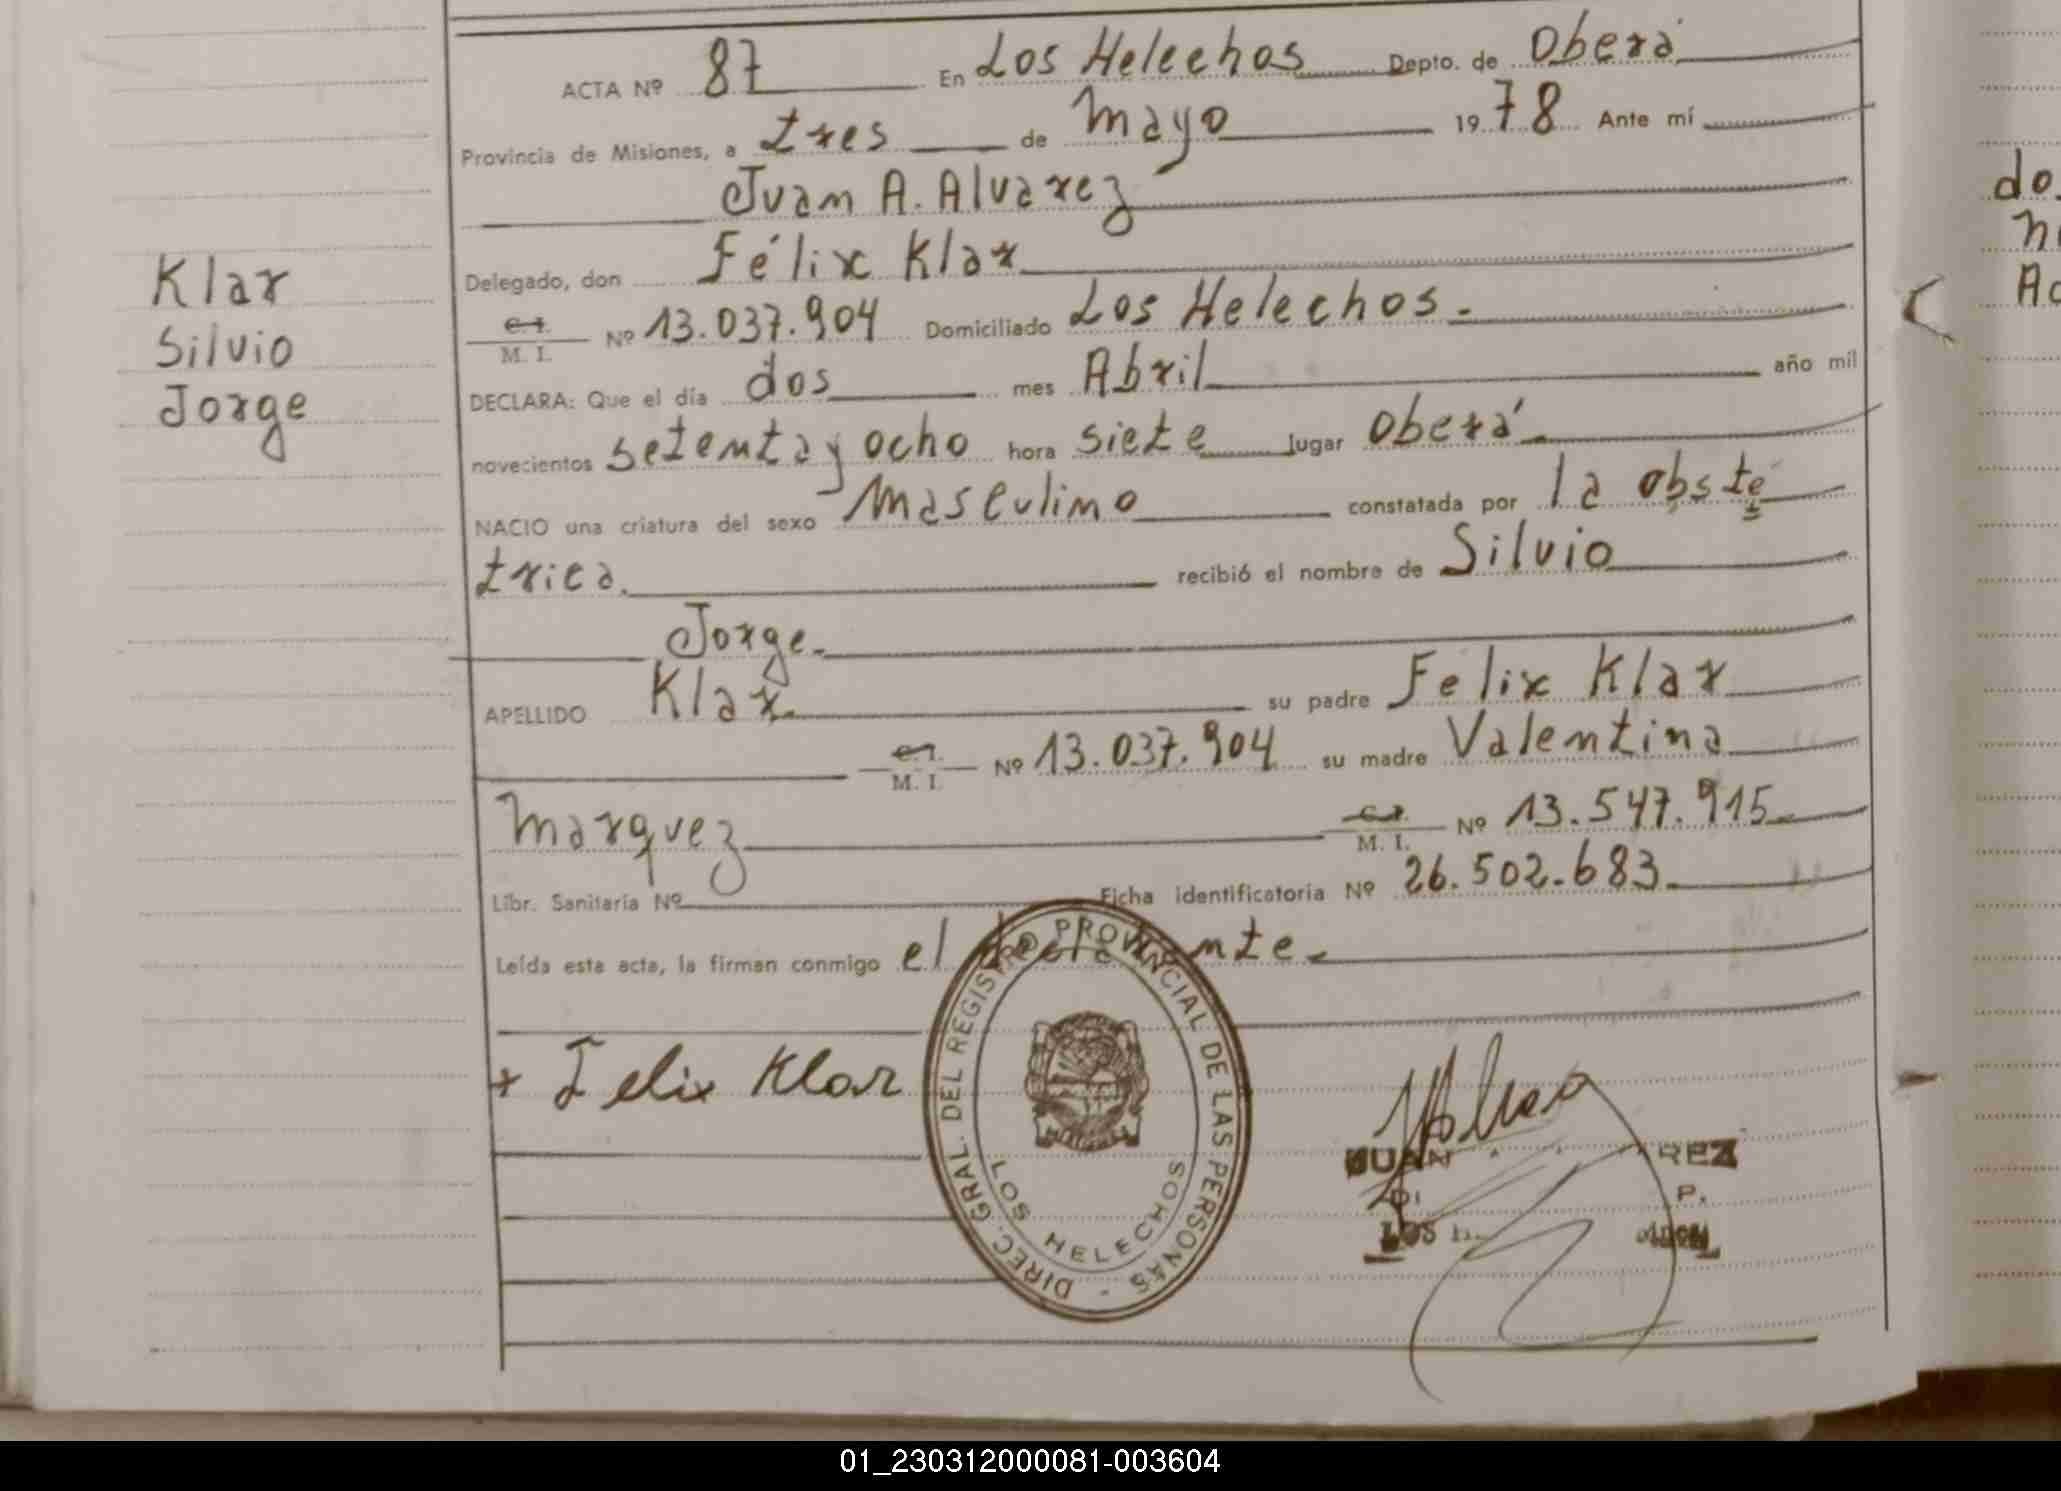 Klar
Silvio
Jorge
ACTA Nº 87 En Los Helechos Depto. de Oberá
Provincia de Misiones, a tres de mayo 1978 Ante mí
Juan A. Alvarez
Delegado, don Félix Klar
C. I. M. I. Nº 13.037.904 Domiciliado Los Helechos.
DECLARA: Que el día dos mes Abril año mil
novecientos setenta y ocho hora siete lugar Oberá
NACIO una criatura del sexo Masculino constatada por la obste
trica. recibió el nombre de Silvio
Jorge.
APELLIDO Klar su padre Felix Klar
C. I. M. I. Nº 13.037.904 su madre Valentina
Marquez C. I. M. I. Nº 13.547.915
Libr. Sanitaria Nº Ficha identificatoria Nº 26.502.683
Leída esta acta, la firman conmigo el declarante.
+ Felix Klar
DIREC. GRAL. DEL REGISTRO PROVINCIAL DE LAS PERSONAS -
LOS HELECHOS
JUAN REZ
P.
LOS H
do
Ac
01_230312000081-003604